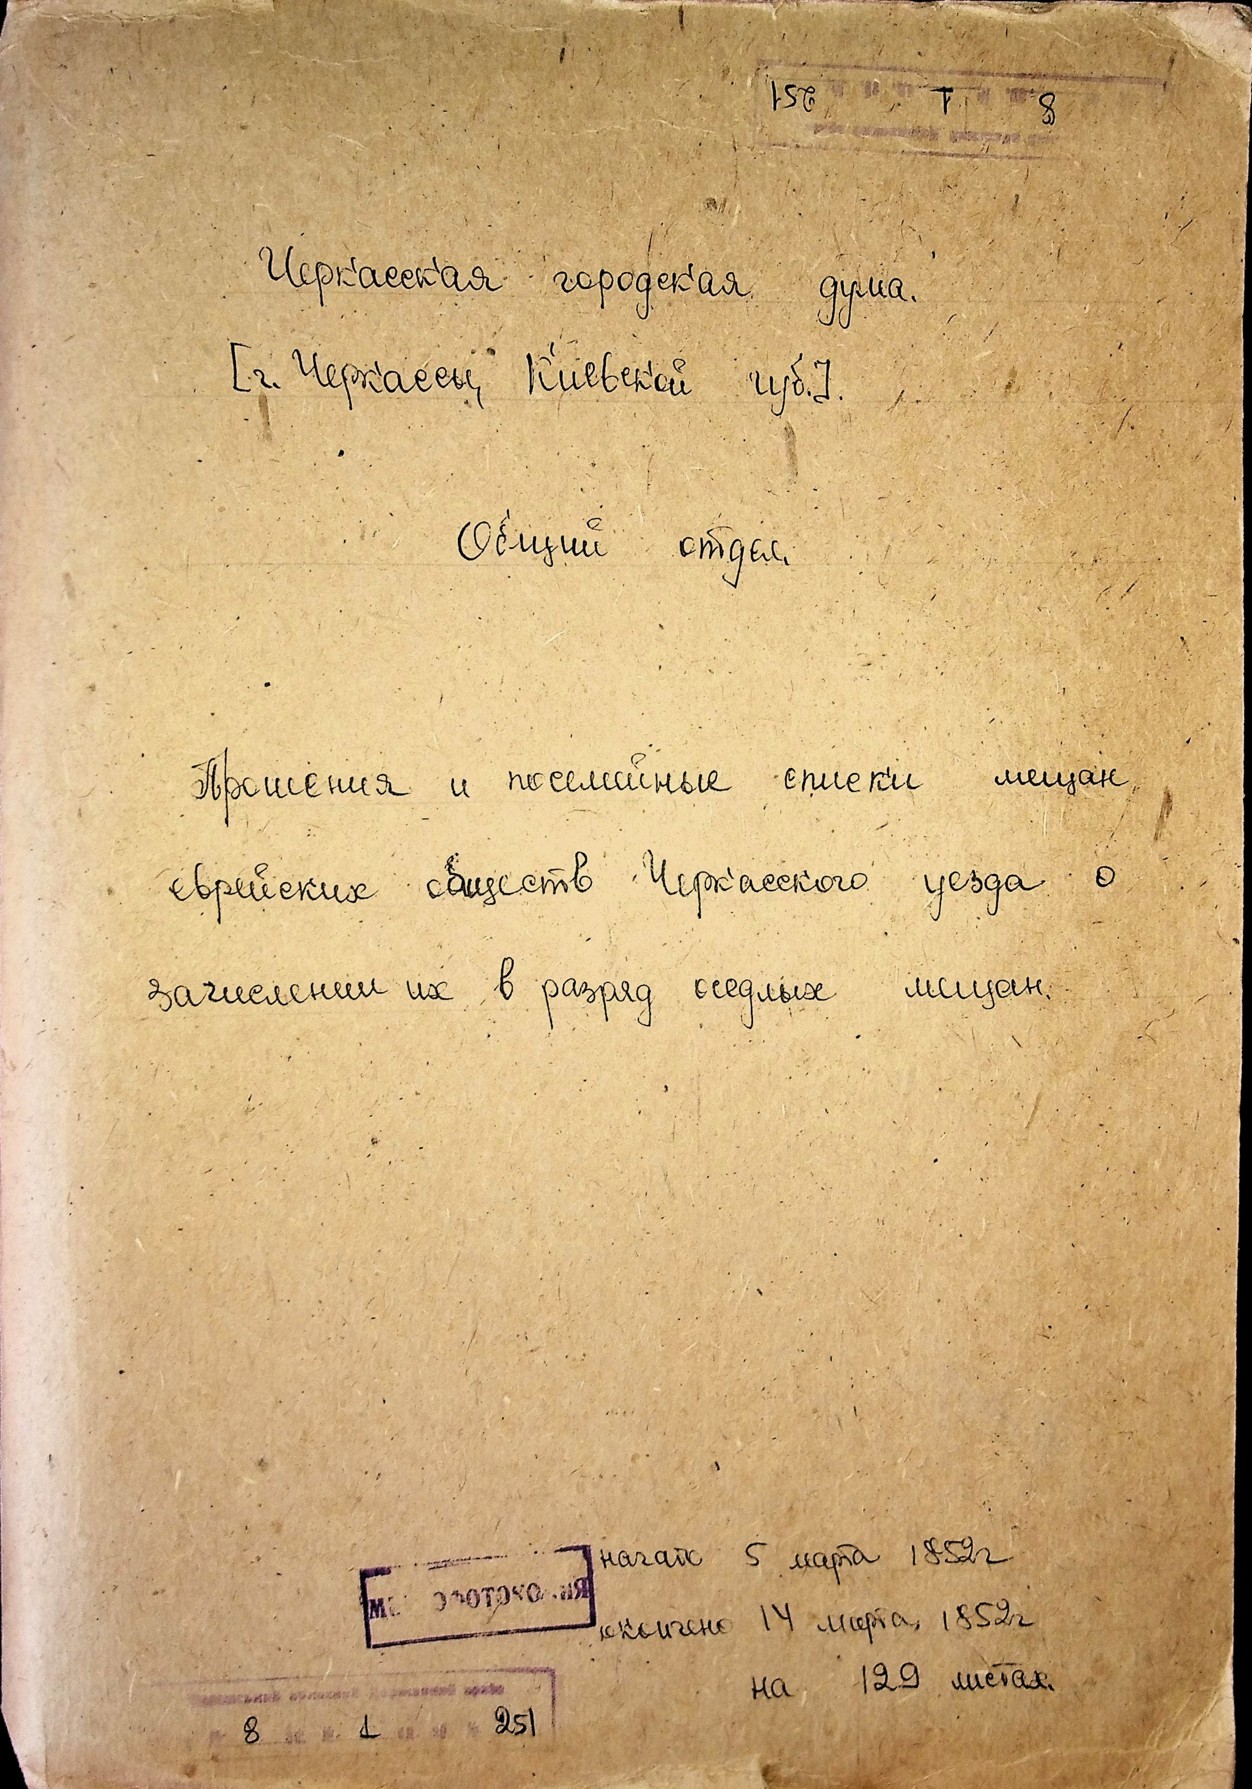 251 1 8
Черкасская городская дума.
[г. Черкассы, Киевской губ.].
Общий отдел.
Прошения и посемейные списки мещан
еврейских обществ Черкасского уезда о
зачислении их в разряд оседлых мещан.
начато 5 марта 1852г
окончено 14 марта 1852г
на 129 листах.
8 1 251